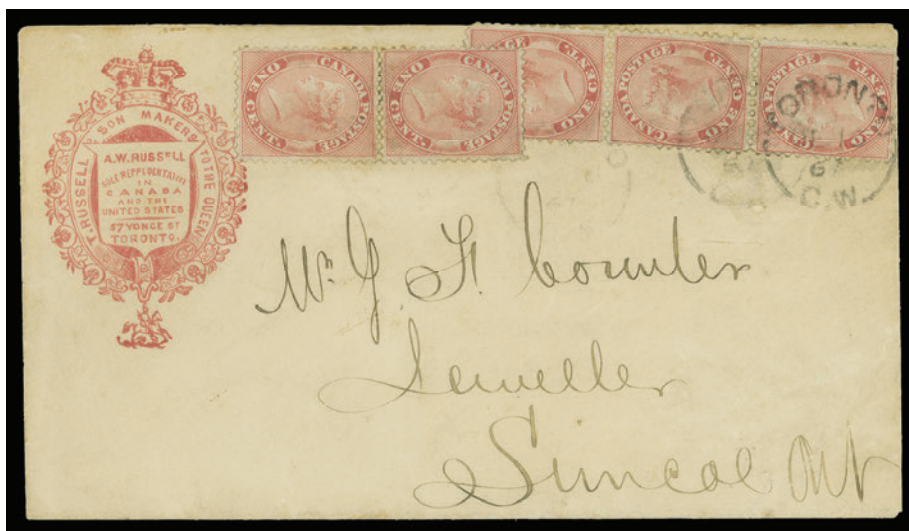 T. RUSSELL & SON MAKERS TO THE QUEEN
A.W. RUSSELL
SOLE REPRESENTATIVE
IN
CANADA
AND THE
UNITED STATES
57 YONGE ST
TORONTO.
CANADA POSTAGE
ONE CENT
CANADA POSTAGE
ONE CENT
CANADA POSTAGE
ONE CENT
CANADA POSTAGE
ONE CENT
CANADA POSTAGE
ONE CENT
TORONTO
C.W.
Mr G. H. Counter
Jeweller
Simcoe Ont